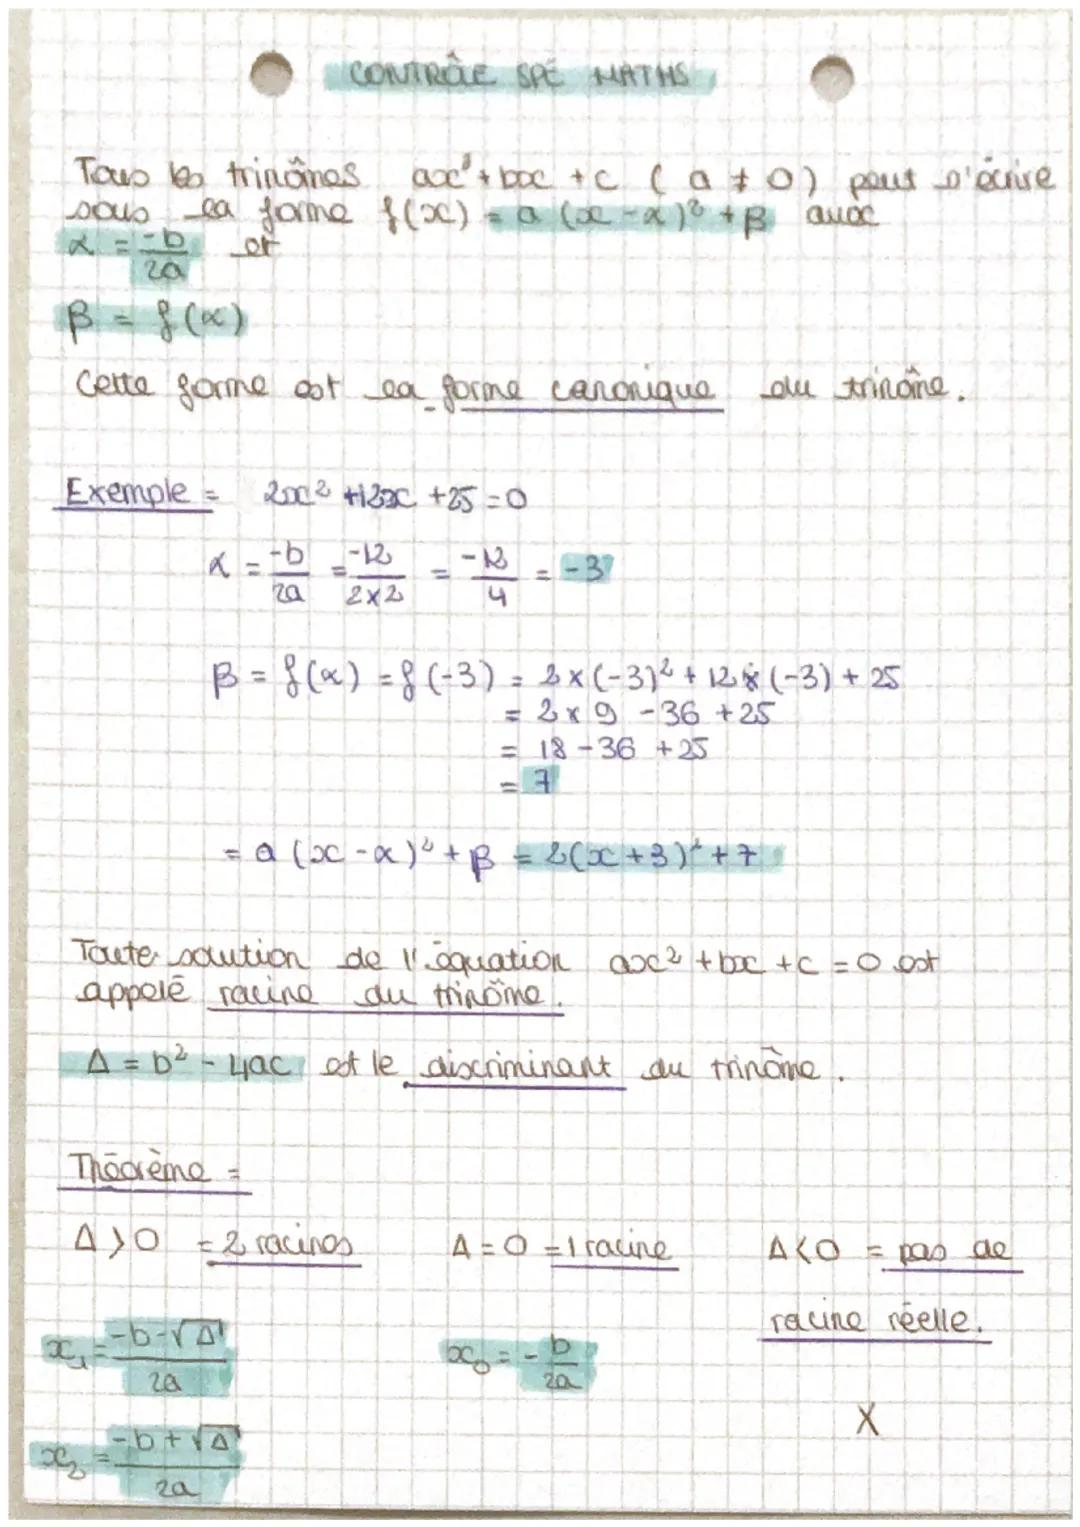 CONTRÔLE SPÉ MATHS
Tous les trinômes ax² + bx + c ( a ≠ 0) peut s'écrire
sous la forme f(x) = a (x - α)² + β avec
α = -b/2a et
β = f(α)
Cette forme est la forme canonique du trinôme.
Exemple = 2x² +12x +25 = 0
α = -b/2a = -12/2×2 = -12/4 = -3
β = f(α) = f(-3) = 2×(-3)² + 12×(-3) + 25
= 2×9 -36 +25
= 18 -36 +25
= 7
= a (x - α)² + β = 2(x+3)² + 7
Toute solution de l'équation ax² + bx + c = 0 est
appelé racine du trinôme.
Δ = b² - 4ac est le discriminant du trinôme.
Théorème =
Δ > 0 = 2 racines Δ = 0 = 1 racine Δ < 0 = pas de
racine réelle.
x₁ = -b-√Δ/2a x₀ = -b/2a
X
x₂ = -b+√Δ/2a